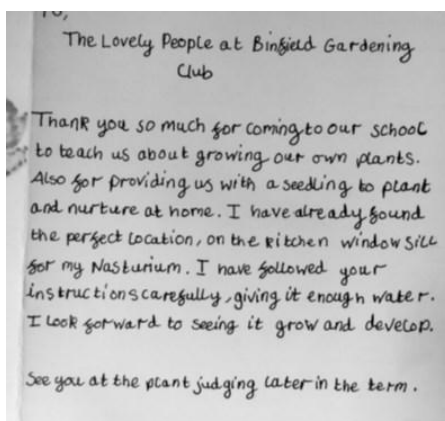 To,
The Lovely People at Binfield Gardening
Club
Thank you so much for coming to our school
to teach us about growing our own plants.
Also for providing us with a seedling to plant
and nurture at home. I have already found
the perfect location, on the kitchen window sill
for my Nasturium. I have followed your
instructions carefully, giving it enough water.
I look forward to seeing it grow and develop.
See you at the plant judging later in the term.